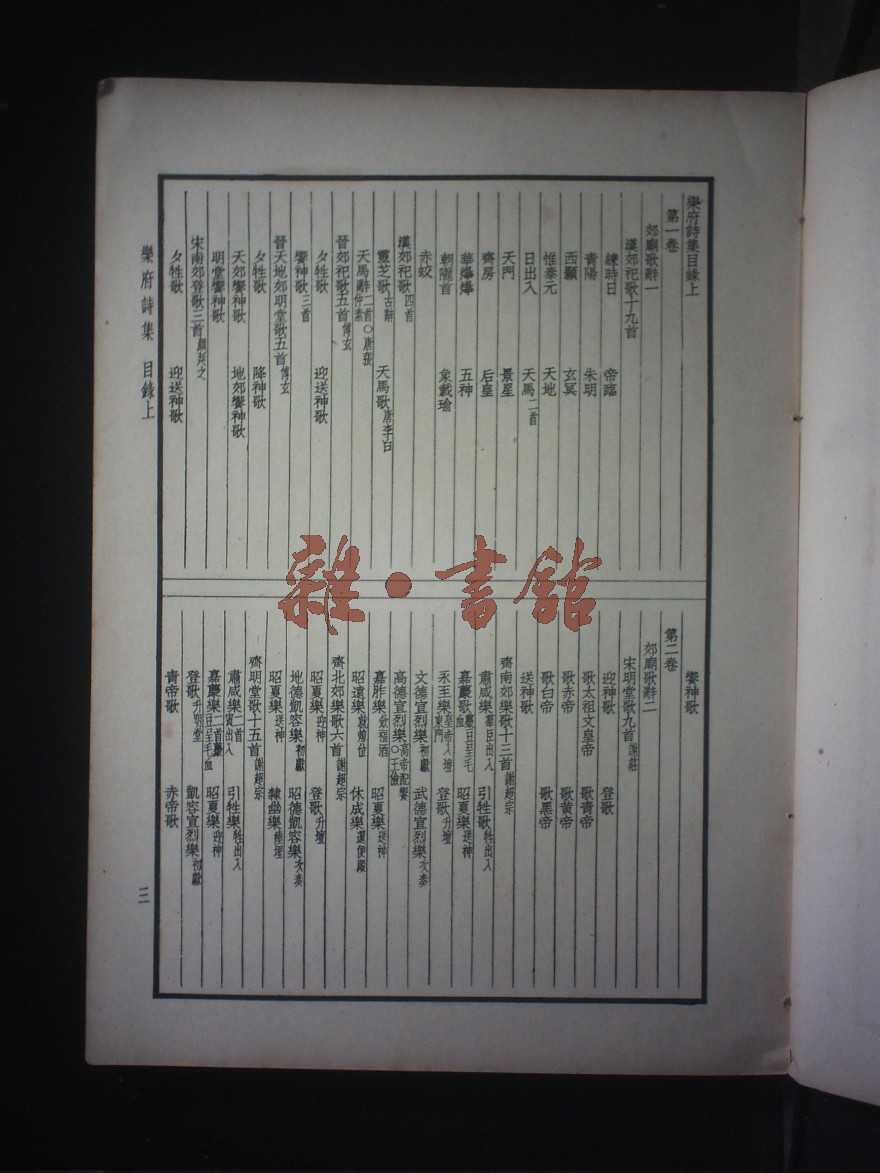 樂府詩集目錄上
第一卷
郊廟歌辭一
漢郊祀歌十九首
練時日 帝臨
青陽 朱明
西顥 玄冥
惟泰元 天地
日出入 天馬二首
天門 景星
齊房 后皇
華爗爗 五神
朝隴首 象載瑜
赤蛟
漢郊祀歌四首
靈芝歌古辭 天馬歌唐李白
天馬辭二首○唐張仲素
晉郊祀歌五首傅玄
夕牲歌 迎送神歌
饗神歌三首
晉天地郊明堂歌五首傅玄
夕牲歌 降神歌
天郊饗神歌 地郊饗神歌
明堂饗神歌
宋南郊登歌三首顏延之
夕牲歌 迎送神歌
饗神歌
第二卷
郊廟歌辭二
宋明堂歌九首謝莊
迎神歌 登歌
歌太祖文皇帝 歌青帝
歌赤帝 歌黄帝
歌白帝 歌黑帝
送神歌
齊南郊樂歌十三首謝超宗
肅咸樂羣臣出入 引牲歌牲出入
嘉薦歌薦豆呈毛血 昭夏樂送神
永至樂皇帝入壇東門 登歌升壇
文德宣烈樂初獻 武德宣烈樂次奏
高德宣烈樂高帝配饗○王儉
嘉胙樂飲福酒 昭夏樂送神
昭遠樂就燎位 休成樂還便殿
齊北郊樂歌六首謝超宗
昭夏樂迎神 登歌升壇
地德凱容樂初獻 昭德凱容樂次奏
昭夏樂送神 隸幽樂瘞埋
齊明堂歌十五首謝超宗
肅咸樂二首賓出入 引牲樂牲出入
嘉薦樂二首薦豆呈毛血 昭夏樂迎神
登歌升明堂 凱容宣烈樂初獻
青帝歌 赤帝歌
樂府詩集 目錄上
三
雜·書館